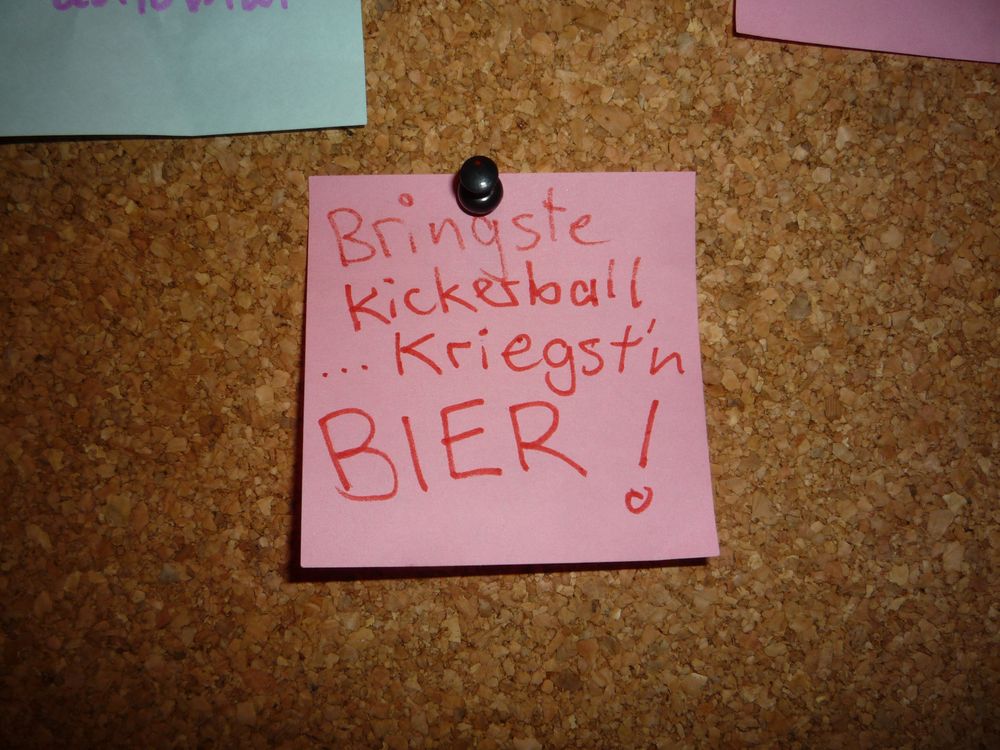 Bringste
Kickerball
... Kriegst'n
BIER !